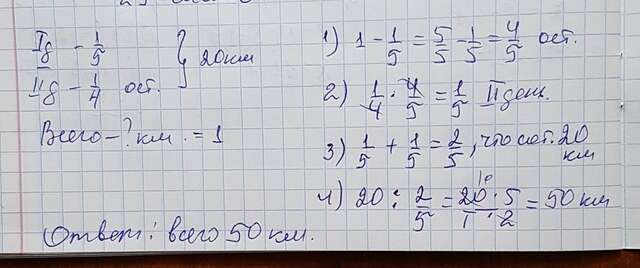 Iд - 1/5 } 20 км
IIд - 1/4 ост.
Всего - ? км. = 1
1) 1 - 1/5 = 5/5 - 1/5 = 4/5 ост.
2) 1/4 · 4/5 = 1/5 II день.
3) 1/5 + 1/5 = 2/5, что сост. 20 км
4) 20 : 2/5 = 20 · 5 / 1 · 2 = 50 км
10
Ответ: всего 50 км.